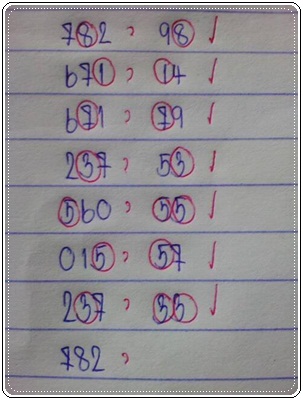 782, 98 ✓
671, 14 ✓
671, 79 ✓
237, 53 ✓
560, 55 ✓
015, 57 ✓
237, 35 ✓
782,